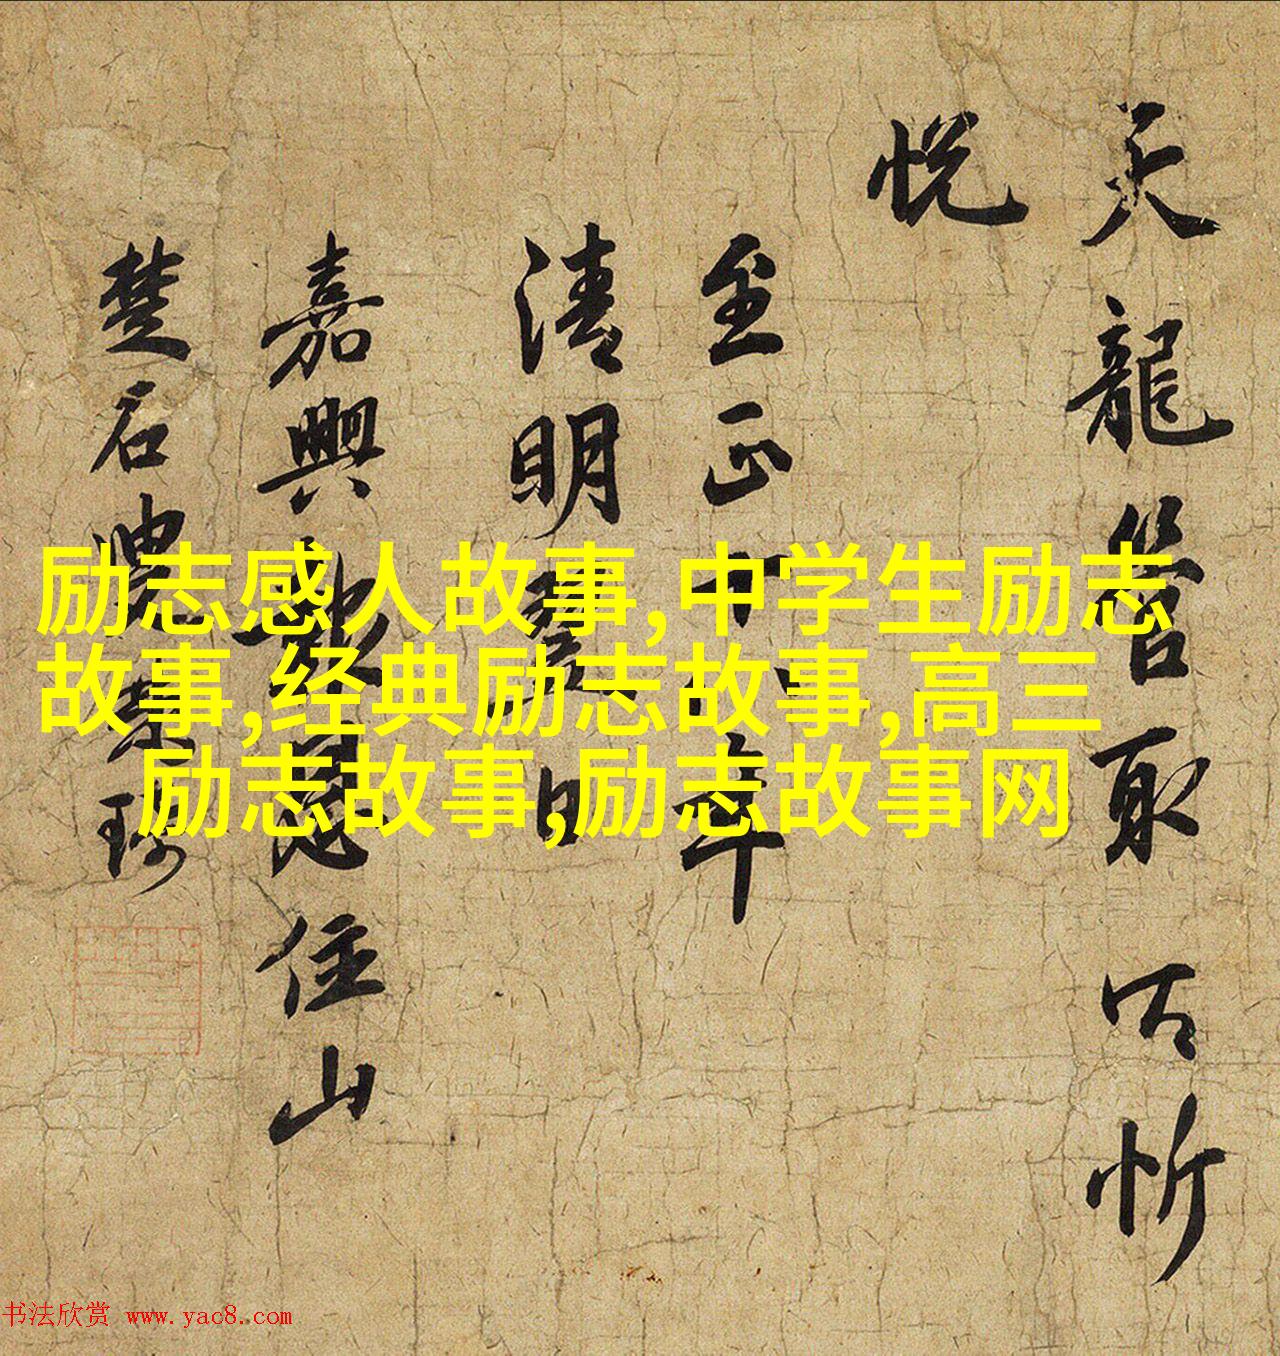 天龍啓取以忻
悦
至正十年
清明日
嘉興報恩住山
楚石梵琦
励志感人故事,中学生励志
故事,经典励志故事,高三
励志故事,励志故事网
书法欣赏 www.yac8.com